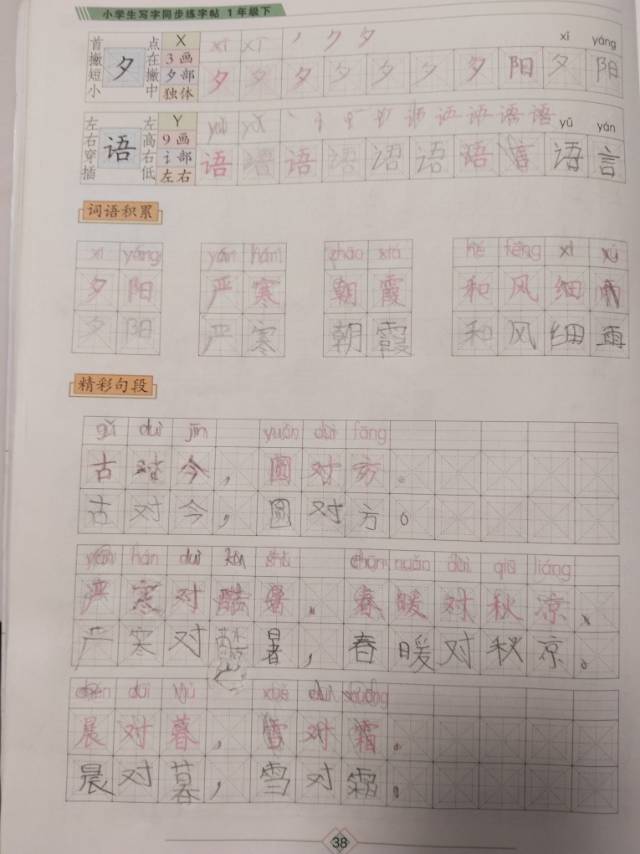 小学生写字同步练字帖 1年级下
首撇短小 夕 点在撇中 X 3画 夕部 独体 xī xī xī yáng
夕 夕 夕 夕 夕 夕 夕 阳 夕 阳
左右穿插 语 左高右低 Y 9画 讠部 左右 yǔ yán
语 语 语 语 语 语 语 言 语 言
词语积累
xī yáng yán hán zhāo xiá hé fēng xì yǔ
夕 阳 严 寒 朝 霞 和 风 细 雨
夕 阳 严 寒 朝 霞 和 风 细 雨
精彩句段
gǔ duì jīn yuán duì fāng
古 对 今 , 圆 对 方 。
古 对 今 , 圆 对 方 。
yán hán duì kù shǔ chūn nuǎn duì qiū liáng
严 寒 对 酷 暑 , 春 暖 对 秋 凉 、
严 寒 对 酷 暑 , 春 暖 对 秋 凉 。
chén duì mù xuě duì shuāng
晨 对 暮 , 雪 对 霜 。
晨 对 暮 , 雪 对 霜 。
38